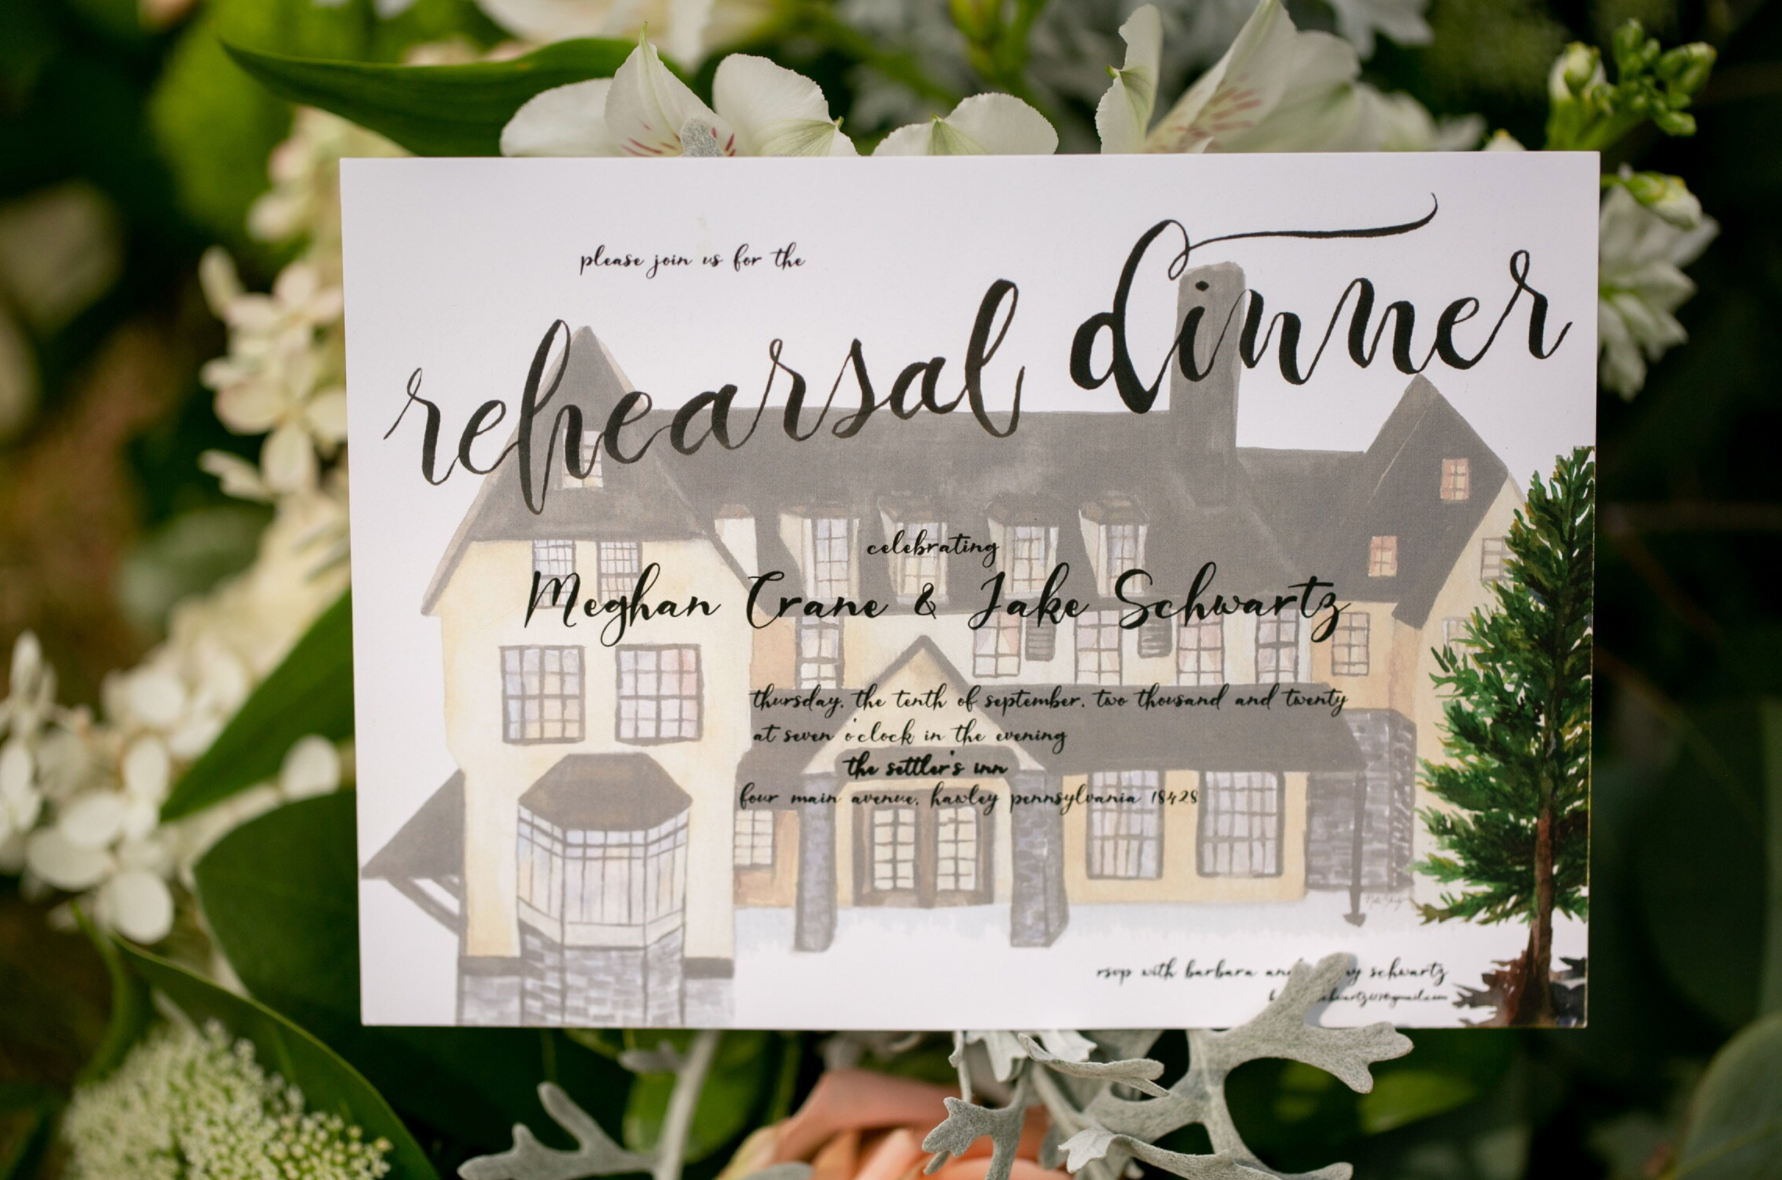 please join us for the
rehearsal dinner
celebrating
Meghan Crane & Jake Schwartz
thursday, the tenth of september, two thousand and twenty
at seven o'clock in the evening
the settler's inn
four main avenue, hawley pennsylvania 18428
rsvp with barbara schwartz